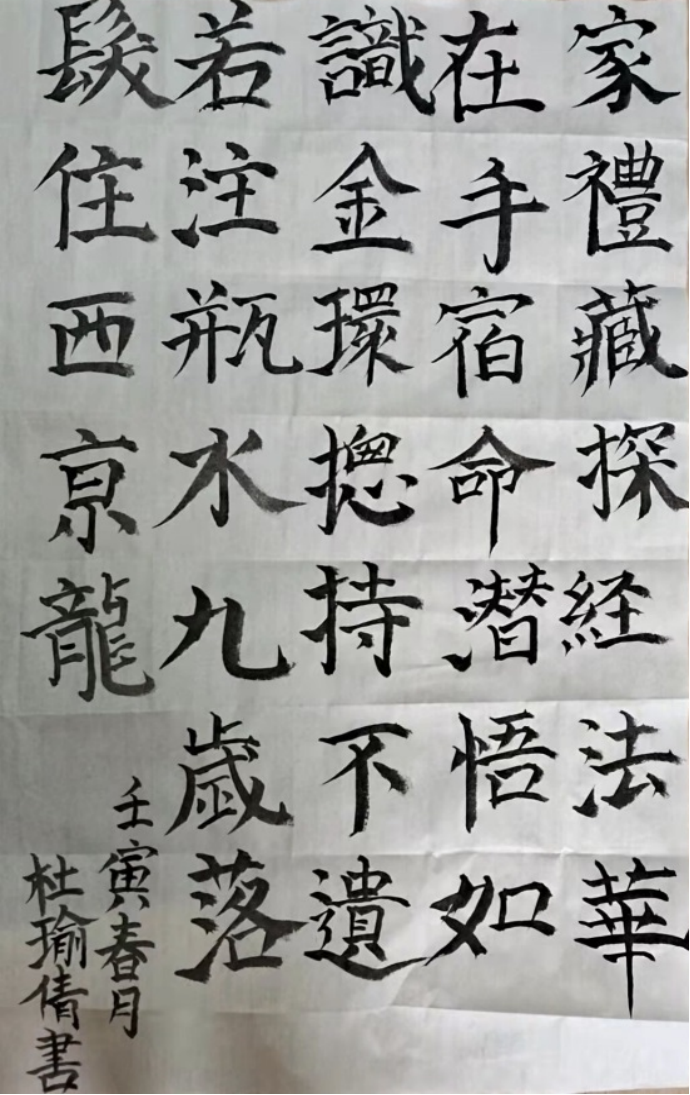 家禮藏探経法華
在手宿命潜悟如
識金環揔持不遺
若注瓶水九歲落
髮住西京龍
壬寅春月
杜瑜倩書